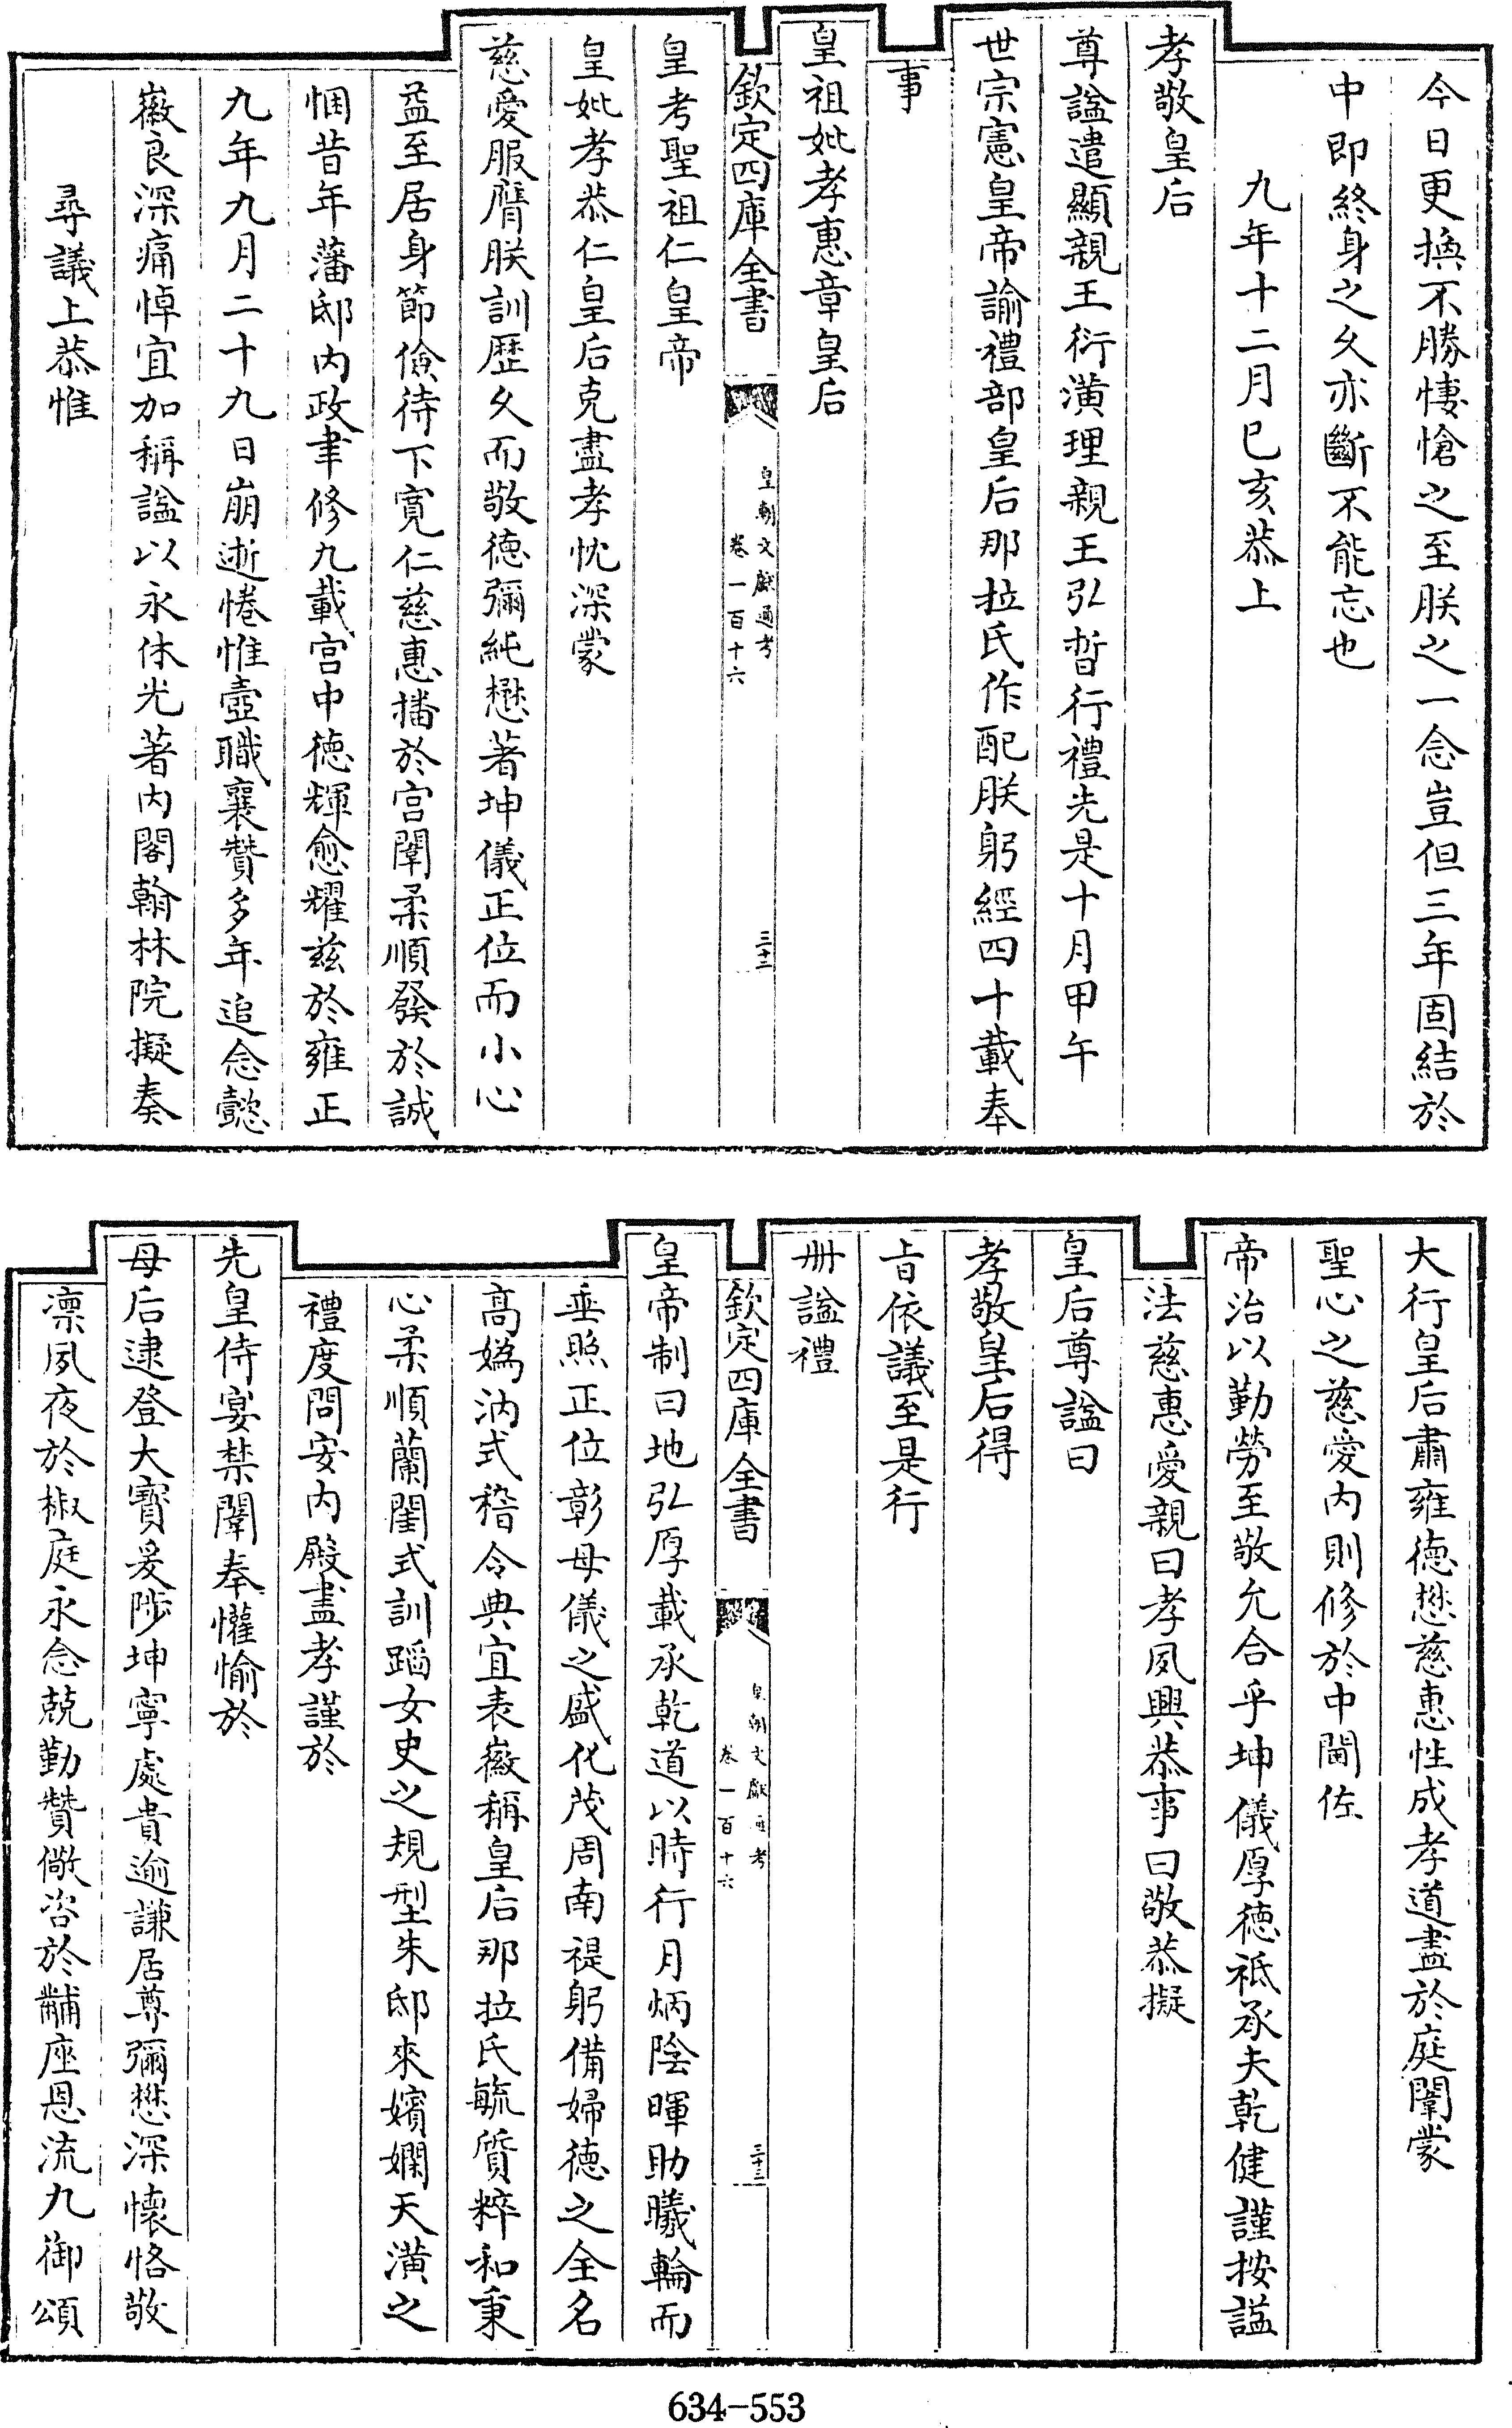 今日更換不勝悽愴之至朕之一念豈但三年固結於
中即終身之久亦斷不能忘也
九年十二月己亥恭上
孝敬皇后
尊諡遣顯親王衍潢理親王弘晳行禮先是十月甲午
世宗憲皇帝諭禮部皇后那拉氏作配朕躬經四十載奉
事
皇祖妣孝惠章皇后
欽定四庫全書
皇朝文獻通考
卷一百十六
三十二
皇考聖祖仁皇帝
皇妣孝恭仁皇后克盡孝忱深蒙
慈愛服膺朕訓歷久而敬德彌純懋著坤儀正位而小心
益至居身節儉待下寬仁慈惠播於宮闈柔順發於誠
悃昔年藩邸內政聿修九載宮中德輝愈耀茲於雍正
九年九月二十九日崩逝惓惟壼職襄贊多年追念懿
徽良深痛悼宜加稱諡以永休光著內閣翰林院擬奏
尋議上恭惟
大行皇后肅雍德懋慈惠性成孝道盡於庭闈蒙
聖心之慈愛內則修於中閫佐
帝治以勤勞至敬允合乎坤儀厚德祗承夫乾健謹按諡
法慈惠愛親曰孝夙興恭事曰敬恭擬
皇后尊諡曰
孝敬皇后得
旨依議至是行
冊諡禮
欽定四庫全書
皇朝文獻通考
卷一百十六
三十三
皇帝制曰地弘厚載承乾道以時行月炳陰暉助曦輪而
垂照正位彰母儀之盛化茂周南禔躬備婦德之全名
高媯汭式稽令典宜表徽稱皇后那拉氏毓質粹和秉
心柔順蘭閨式訓蹈女史之規型朱邸來嬪嫻天潢之
禮度問安內殿盡孝謹於
先皇侍宴禁闈奉懽愉於
母后逮登大寶爰陟坤寧處貴逾謙居尊彌懋深懷恪敬
凛夙夜於椒庭永念兢勤贊儆咨於黼座恩流九御頌
634-553